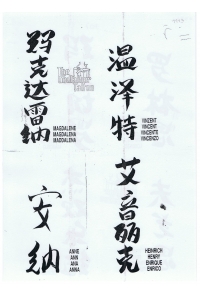 玛克达雷纳
MAGDALENE
MAGDALENA
MADDALENA
温泽特
VINZENT
VINCENT
VINCENTE
VINCENZO
安纳
ANNE
ANN
ANA
ANNA
艾音丽克
HEINRICH
HENRY
ENRIQUE
ENRICO